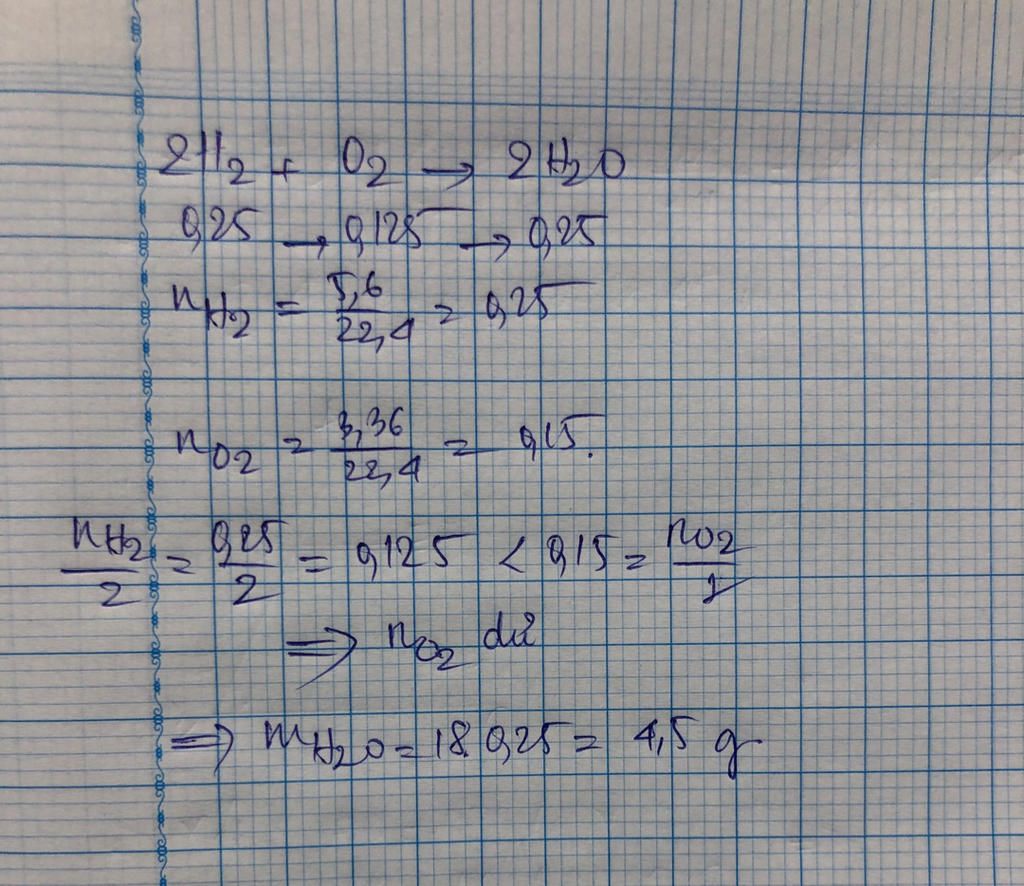 2H₂ + O₂ → 2H₂O
0,25 → 0,125 → 0,25
n_H₂ = 5,6/22,4 = 0,25
n_O₂ = 3,36/22,4 = 0,15.
n_H₂/2 = 0,25/2 = 0,125 < 0,15 = n_O₂/1
⟹ n_O₂ dư
⟹ m_H₂O = 18.0,25 = 4,5 g